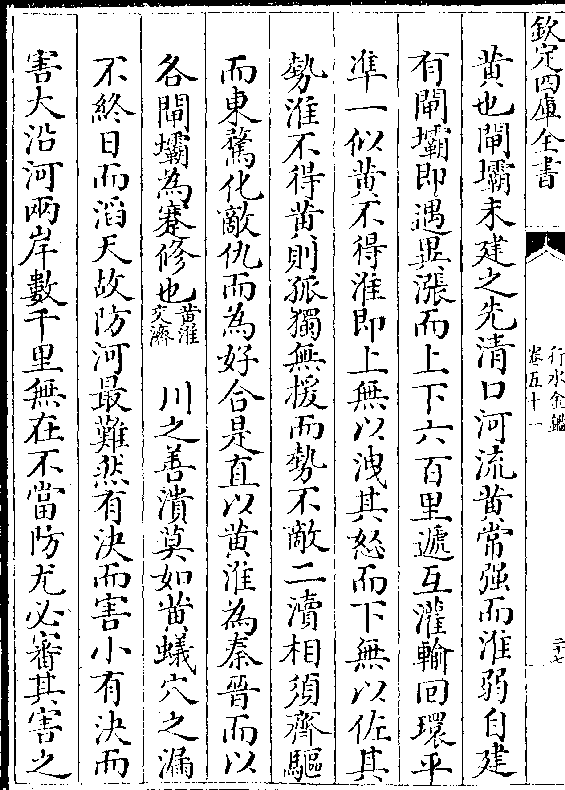 欽定四庫全書
行水金鑑
卷五十一
二十七
黄也閘壩未建之先清口河流黄常强而淮弱自建
有閘壩即遇異漲而上下六百里遞互灌輸回環平
準一似黄不得淮即上無以洩其怒而下無以佐其
勢淮不得黄則孤獨無援而勢不敵二瀆相須齊驅
而東騖化敵仇而為好合是直以黄淮為秦晉而以
各閘壩為蹇修也黄淮交濟 川之善潰莫如黄蟻穴之漏
不終日而滔天故防河最難然有決而害小有決而
害大沿河兩岸數千里無在不當防尤必審其害之